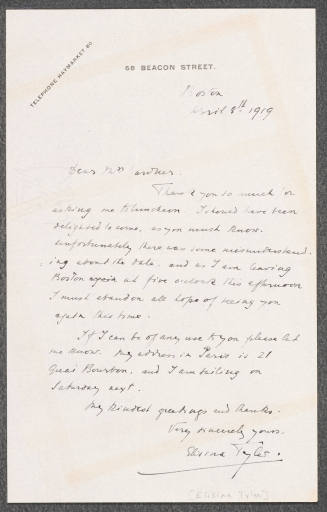 68 BEACON STREET.
TELEPHONE HAYMARKET 80
Boston
April 8th 1919
Dear Mrs Gardner.
Thank you so much for
asking me to luncheon. I should have been
delighted to come, as you must know.
Unfortunately there was some misunderstand-
ing about the date, and as I am leaving
Boston again at five o'clock this afternoon
I must abandon all hope of seeing you
again this time.
If I can be of any use to you please let
me know. My address in Paris is 21
Quai Bourbon, and I am sailing on
Saturday next.
My kindest greetings and thanks.
Very sincerely yours.
Elisina Tyler.
[Elisina Tyler]